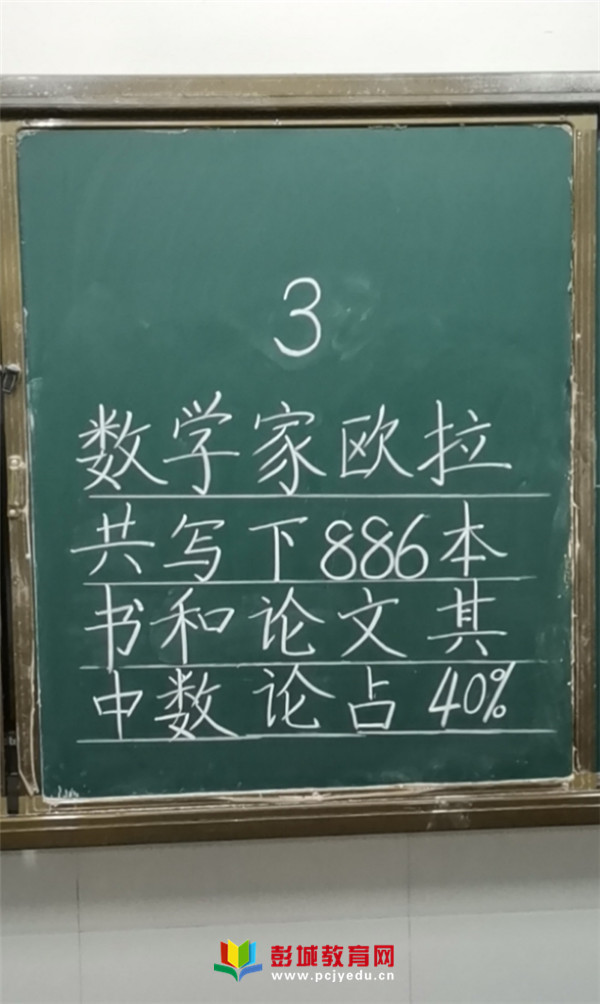 3
数学家欧拉
共写下886本
书和论文其
中数论占40%
彭城教育网
www.pcjyedu.cn